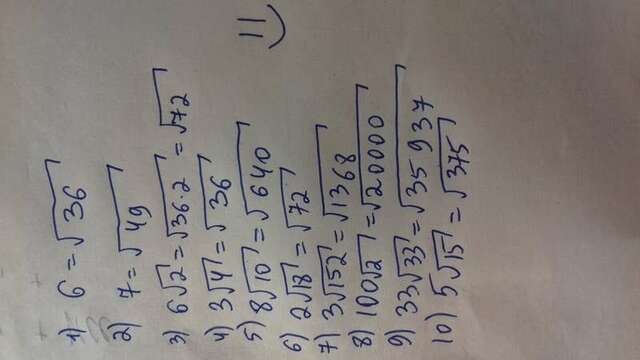 1) 6 = √36
2) 7 = √49
3) 6√2 = √36·2 = √72
4) 3√4 = √36
5) 8√10 = √640
6) 2√18 = √72
7) 3√152 = √1368
8) 100√2 = √20000
9) 33√33 = √35 937
10) 5√15 = √375
=)